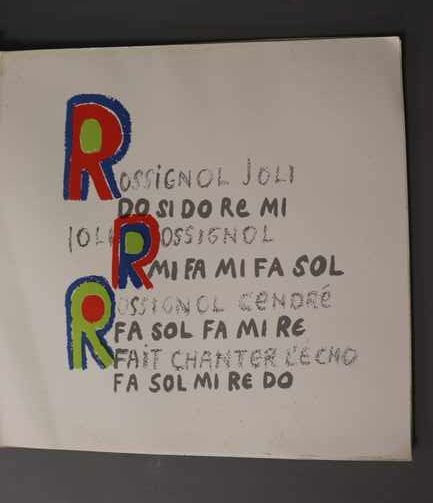 ROSSIGNOL JOLI
DO SI DO RE MI
JOLI ROSSIGNOL
MI FA MI FA SOL
ROSSIGNOL CENDRÉ
FA SOL FA MI RE
FAIT CHANTER L'ÉCHO
FA SOL MI RE DO